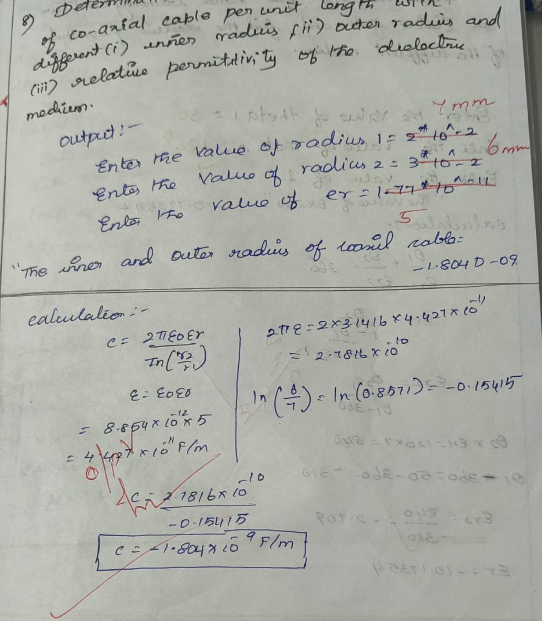 8) Determin
of co-axial cable per unit length with
different (i) inner radius (ii) outer radius and
(iii) relative permittivity of the dielectric
medium.
output:-
7mm
Enter the value of radius 1 = 2*10^-2
Enter the value of radius 2 = 3*10^-2 6mm
Enter the value of er = 1.77*10^-11
5
"The inner and outer radius of coaxil cable=
-1.804D-09
calculation:-
C = 2πε0εr / In(r2/r1)
ε = ε0εr
= 8.854×10^-12×5
= 4.427×10^-11 F/m
C = 2.7816×10^-10 / -0.15415
C = -1.804×10^-9 F/m
2πε = 2×3.1416×4.427×10^-11
= 2.7816×10^-10
ln(6/7) = ln(0.8571) = -0.15415